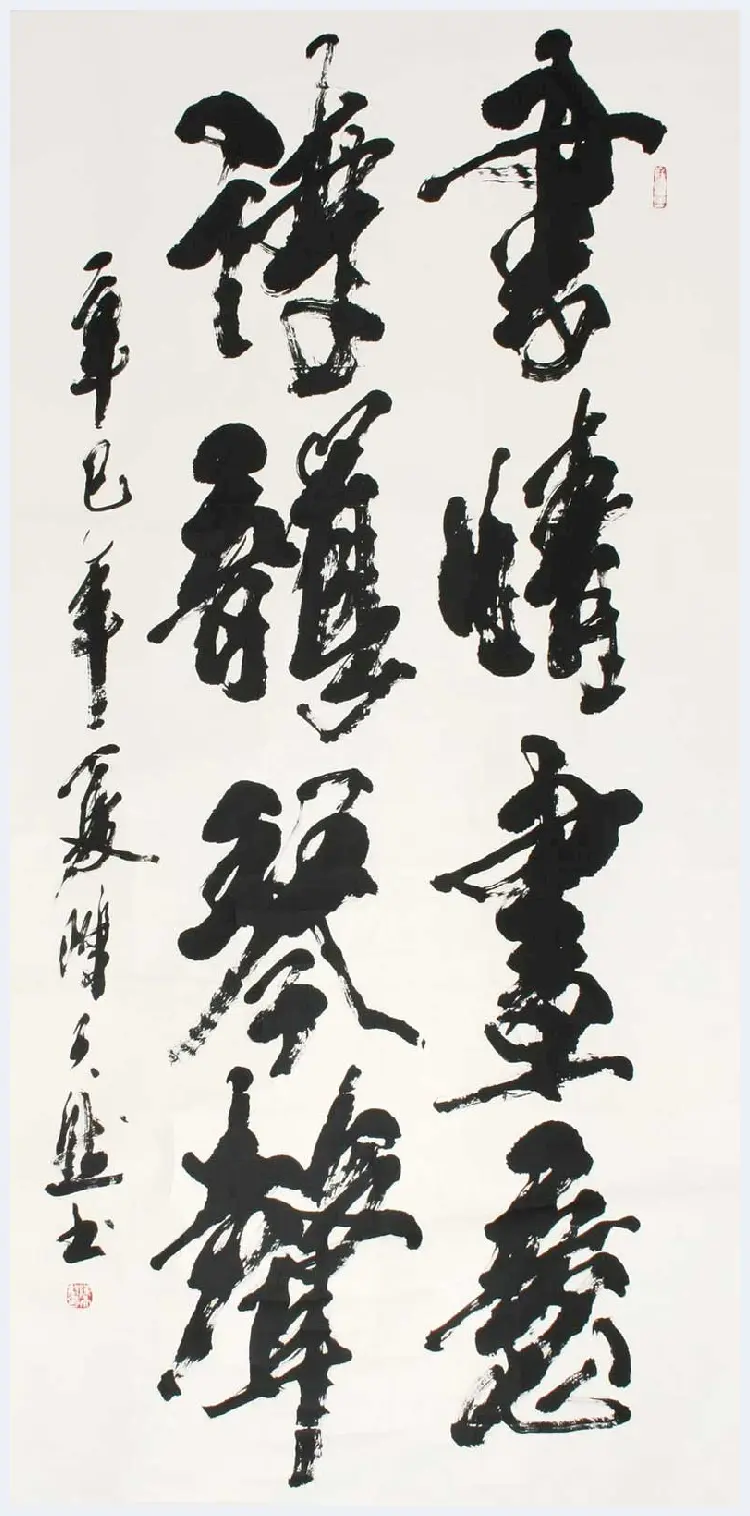 書情畫意
詩韻琴聲
辛巳年夏陳天然書